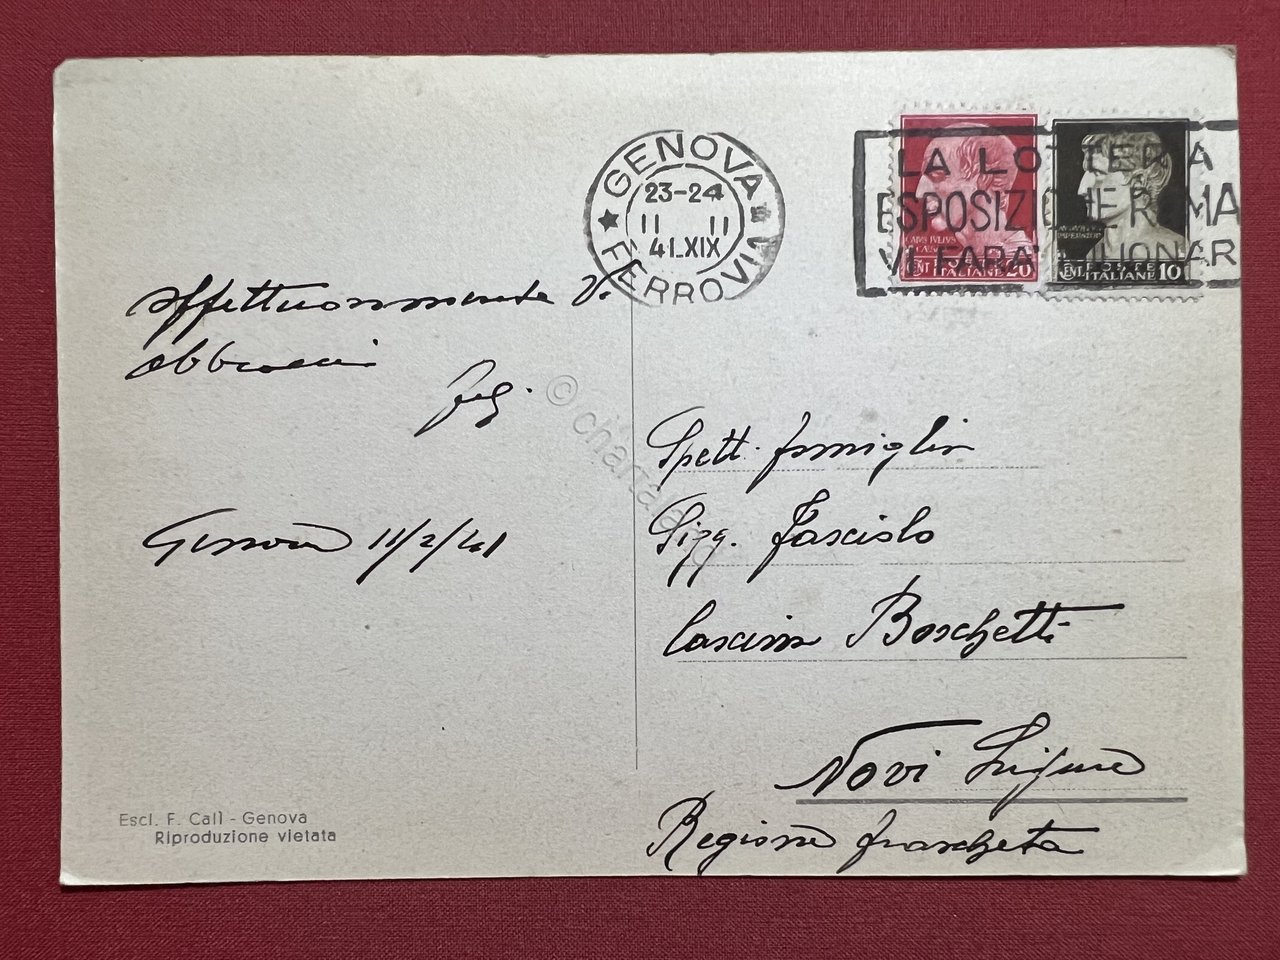 GENOVA
23-24
11 II
41.XIX
FERROVIA
LA LOTTERIA
ESPOSIZIONE ROMA
VI FARA' MILIONARI
CAIUS IULIUS
CENT
ITALIANE 20
POSTE
CENT ITALIANE 10
affettuosamente Vi
abbraccia
Genova 11/2/41
Spett. famiglia
Sigg. Fasciolo
Cascina Boschetti
Novi Ligure
Regione frascheta
Escl. F. Calì - Genova
Riproduzione vietata
© chartaland